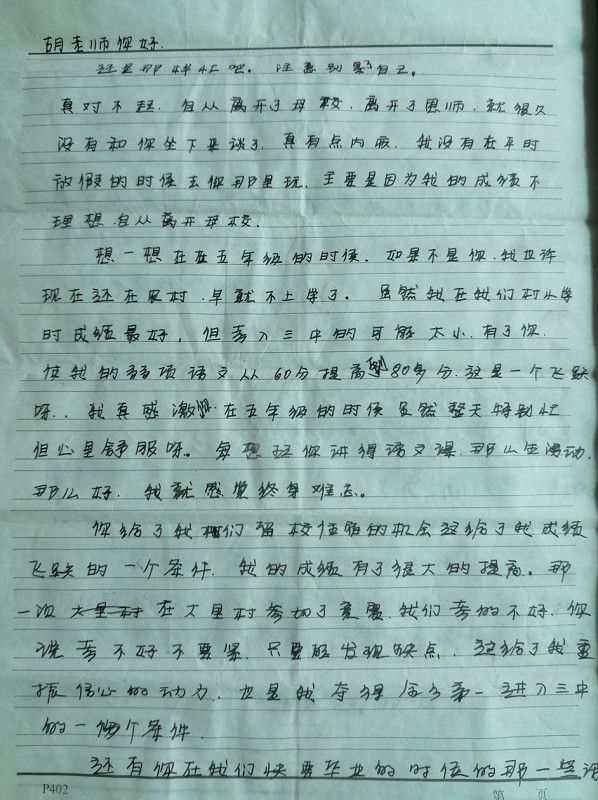 胡老师你好.
还是那样忙吧。注意别累了自己。
真对不起，自从离开了母校，离开了恩师，就很久
没有和你坐下来谈了，真有点内疚，我没有在平时
放假的时候去你那里玩，主要是因为我的成绩不
理想，自从离开母校.
想一想在在五年级的时候，如果不是你，我也许
现在还在农村，早就不上学了。虽然我在我们村小学
时成绩最好，但考入三中的可能太小，有了你，
使我的弱项语文从60分提高到80多分，这是一个飞跃
呀..我真感激你，在五年级的时候虽然整天特别忙
但心里舒服呀。每想起你讲得语文课，那么生动，
那么好，我就感觉终身难忘。
你给了我们留校住宿的机会这给了我成绩
飞跃的一个条件，我的成绩有了很大的提高。那
一次在大里村参加了竞赛，我们考的不好，你
说考不好不要紧，只要能发现缺点，这给了我重
振信心的动力，也是我夺得全乡第一进入三中
的一个条件.
还有你在我们快要毕业的时候的那一些话
P402
第 页